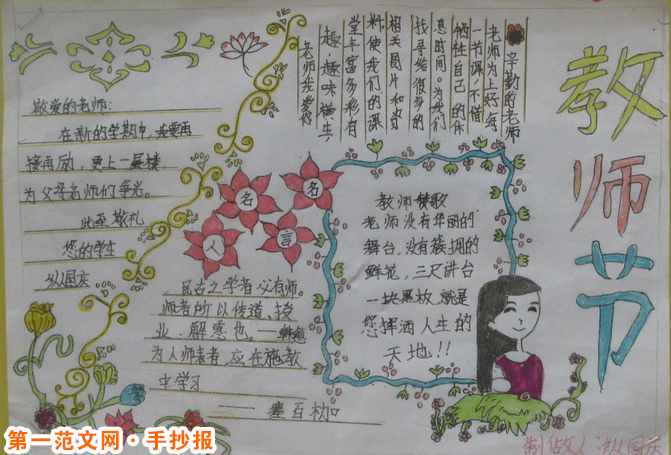 教师节
辛勤的老师
老师为上好每
一节课,不惜
牺牲自己的休
息时间。为我们
找寻给很多的
相关图片和资
料,使我们的课
堂丰富多彩,有
趣,趣味横生,
老师我爱你
敬爱的老师:
在新的学期中,我要再
接再励,更上一层楼,
为父母老师们争光。
此至敬礼
您的学生
纵国庆
名人名言
教师赞歌
老师没有华丽的
舞台,没有簇拥的
鲜花,三尺讲台
一块黑板,就是
您挥洒人生的
天地!!
民古之学者必有师。
师者所以传道、授
业、解惑也。——韩愈
为人师表者,应在施教
中学习
——塞百初
制做人:纵国庆
第一范文网·手抄报